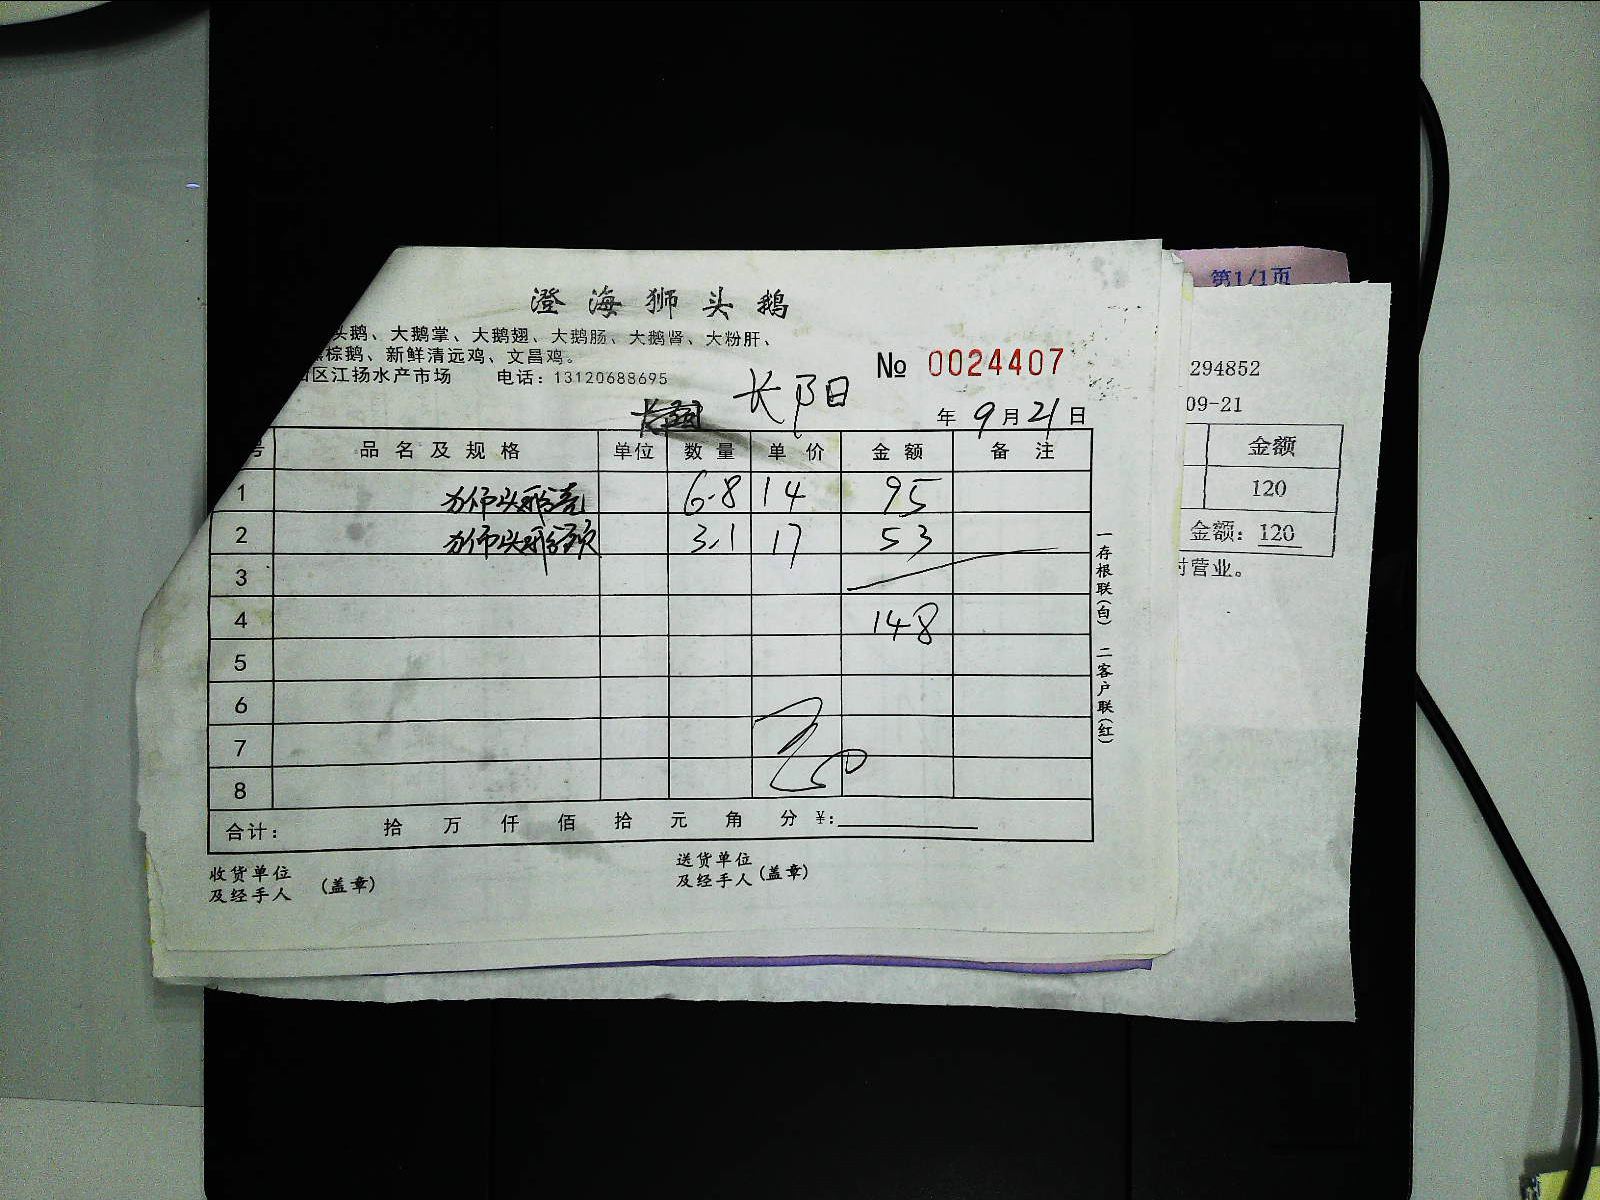 澄海狮头鹅
头鹅、大鹅掌、大鹅翅、大鹅肠、大鹅肾、大粉肝、
棕鹅、新鲜清远鸡、文昌鸡。
区江扬水产市场 电话：13120688695
№ 0024407
长阳
年 9 月 21 日
号 品名及规格 单位 数量 单价 金额 备注
1 6.8 14 95
2 3.1 17 53
3
4 148
5
6
7
8
合计： 拾 万 仟 佰 拾 元 角 分 ¥：
收货单位
及经手人 （盖章）
送货单位
及经手人（盖章）
一存根联（白） 二客户联（红）
第1/1页
294852
09-21
金额
120
金额：120
时营业。